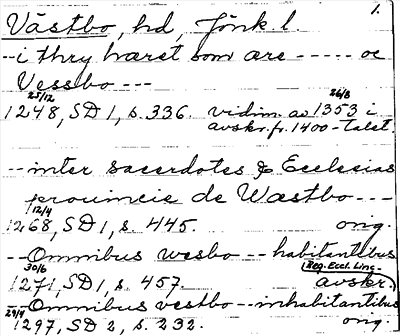 Västbo, hd, Jönk l. 1.
--i thry hæret som are ----- oc
Vessbo ---
25/12 26/8
1248, SD 1, s. 336. vidim. av 1353 i
avskr. fr. 1400-talet.
--inter sacerdotes & Ecclesias
prouincie de Wæstbo ---
12/4
1268, SD 1, s. 445. orig.
--Omnibus wesbo -- habitantibus
30/6 Reg. Eccl. Linc.
1271, SD 1, s. 457. avskr.
--Omnibus vestbo -- inhabitantibus
29/4
1297, SD 2, s. 232. orig.